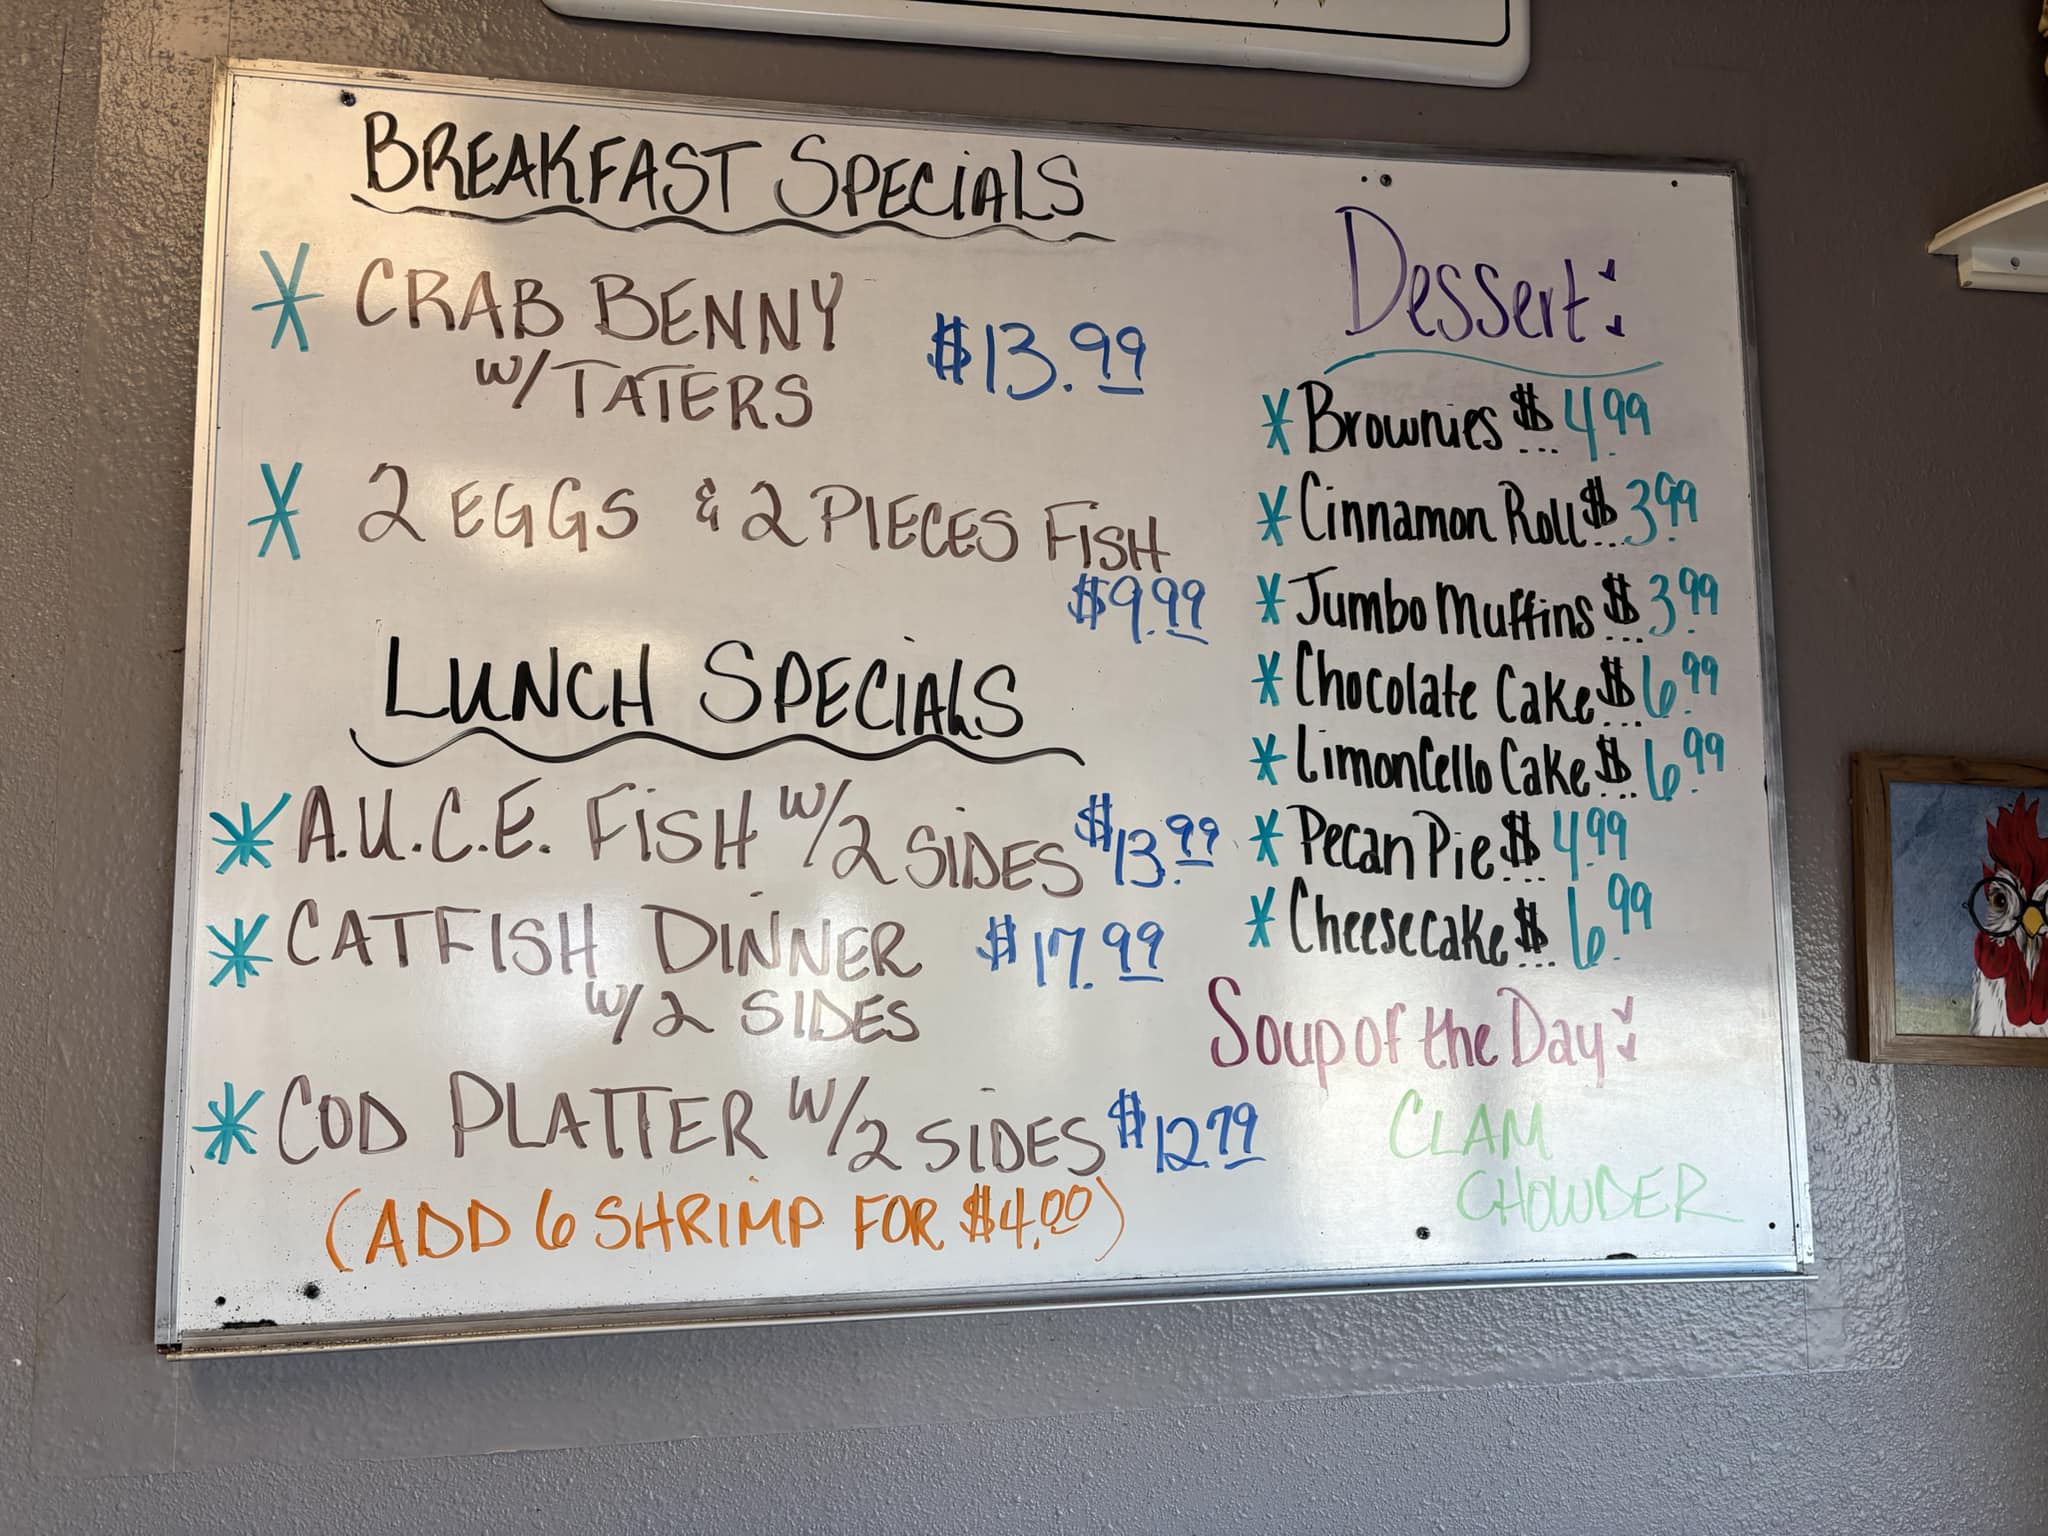 BREAKFAST SPECIALS
* CRAB BENNY
w/TATERS $13.99
* 2 EGGS & 2 PIECES FISH
$9.99
LUNCH SPECIALS
* A.U.C.E. FISH w/2 SIDES $13.99
* CATFISH DINNER $17.99
w/2 SIDES
* COD PLATTER w/2 SIDES $12.79
(ADD 6 SHRIMP FOR $4.00)
Dessert:
* Brownies $4.99
* Cinnamon Roll $3.99
* Jumbo Muffins $3.99
* Chocolate Cake $6.99
* LimonCello Cake $6.99
* Pecan Pie $4.99
* Cheesecake $6.99
Soup of the Day:
CLAM
CHOWDER